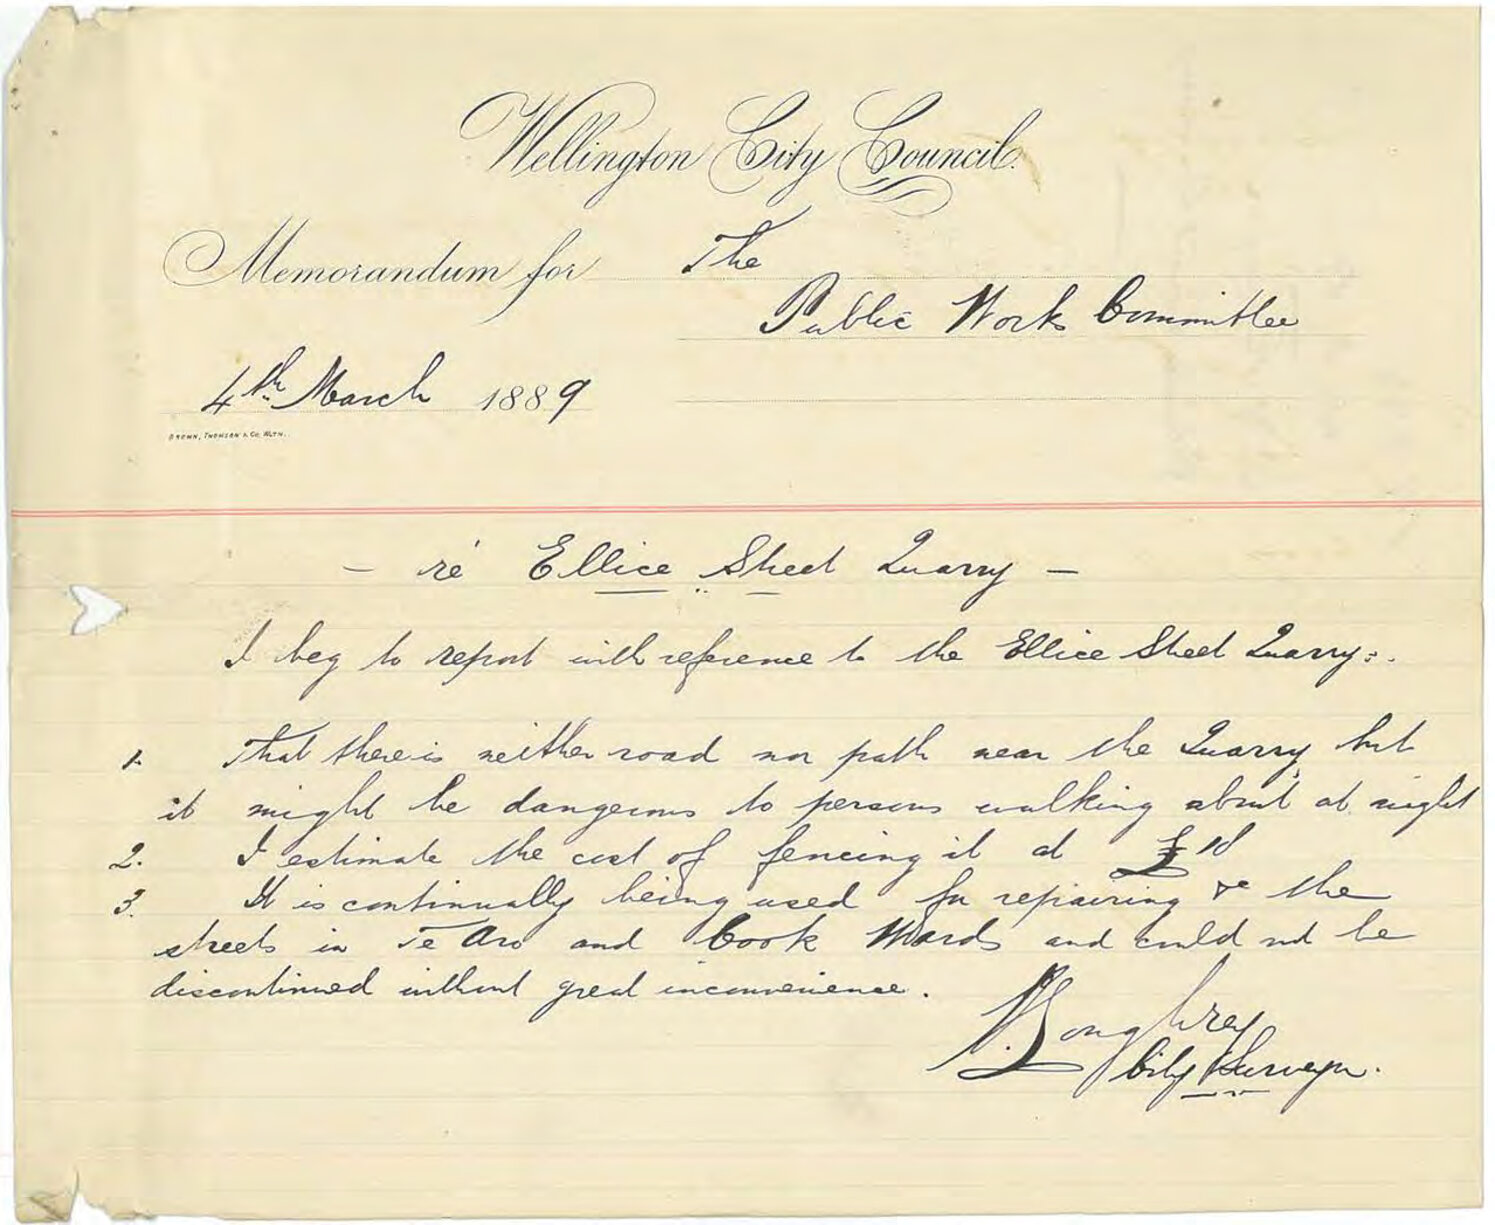 Wellington City Council.
Memorandum for The
Public Work Committee
4th March 1889
BROWN, THOMSON & CO. WGTN.
– re Ellice Street Quarry –
I beg to report with reference to the Ellice Street Quarry:.
1. That there is neither road nor path near the Quarry, but
it might be dangerous to persons walking about at night
2. I estimate the cost of fencing it at £
3. It is continually being used for repairing &c the
streets in Te Aro and Cook Wards and could not be
discontinued without great inconvenience.
Loughrey
City Surveyor.